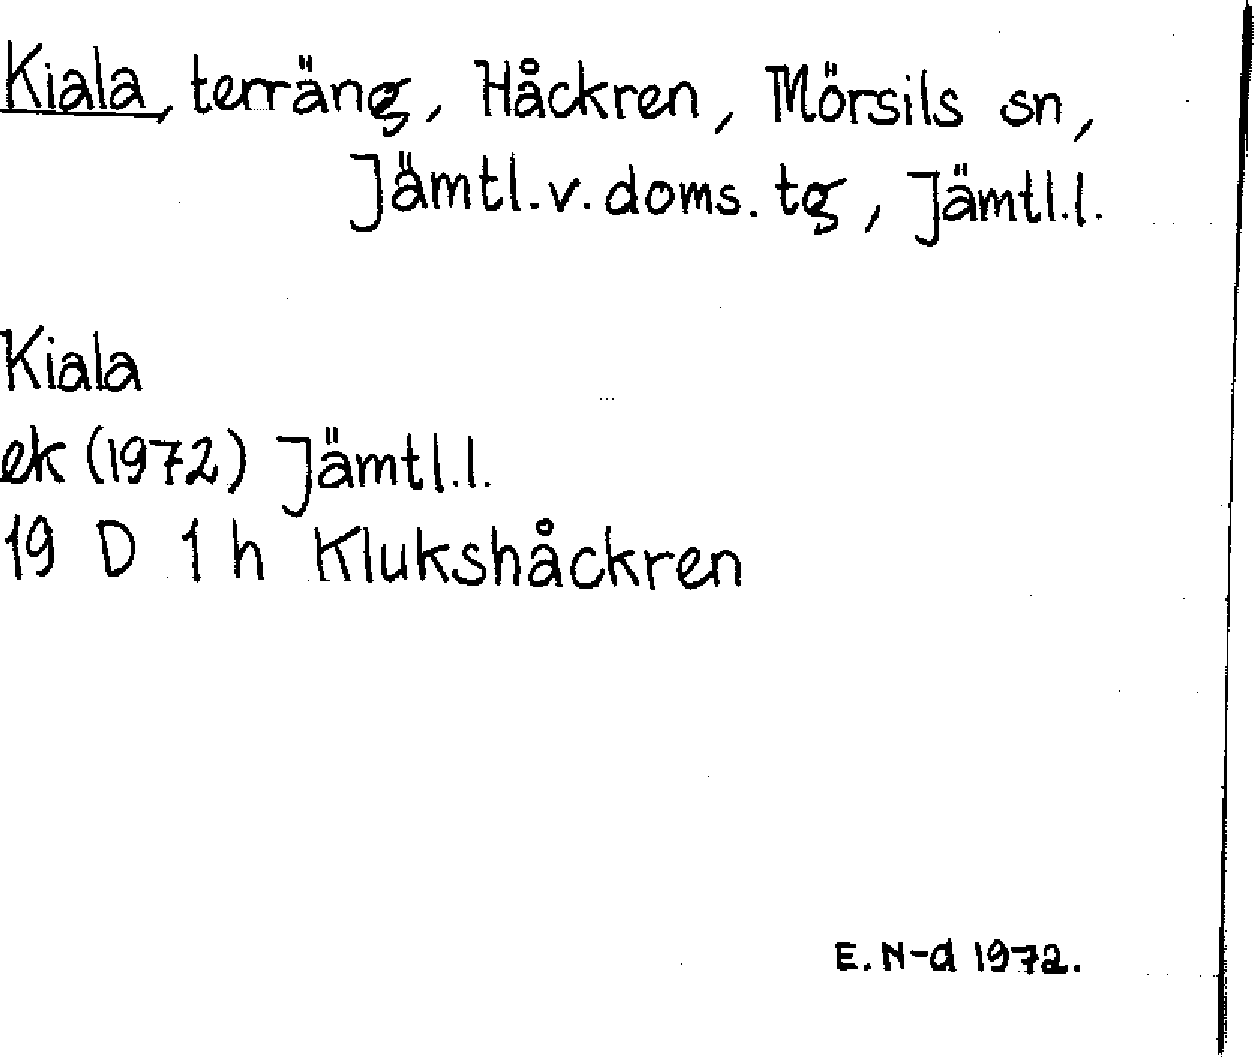 Kiala, terräng, Håckren, Mörsils sn,
Jämtl.v.doms.tg, Jämtl.l.
Kiala
ek (1972) Jämtl.l.
19 D 1 h Klukshåckren
E. N-d 1972.